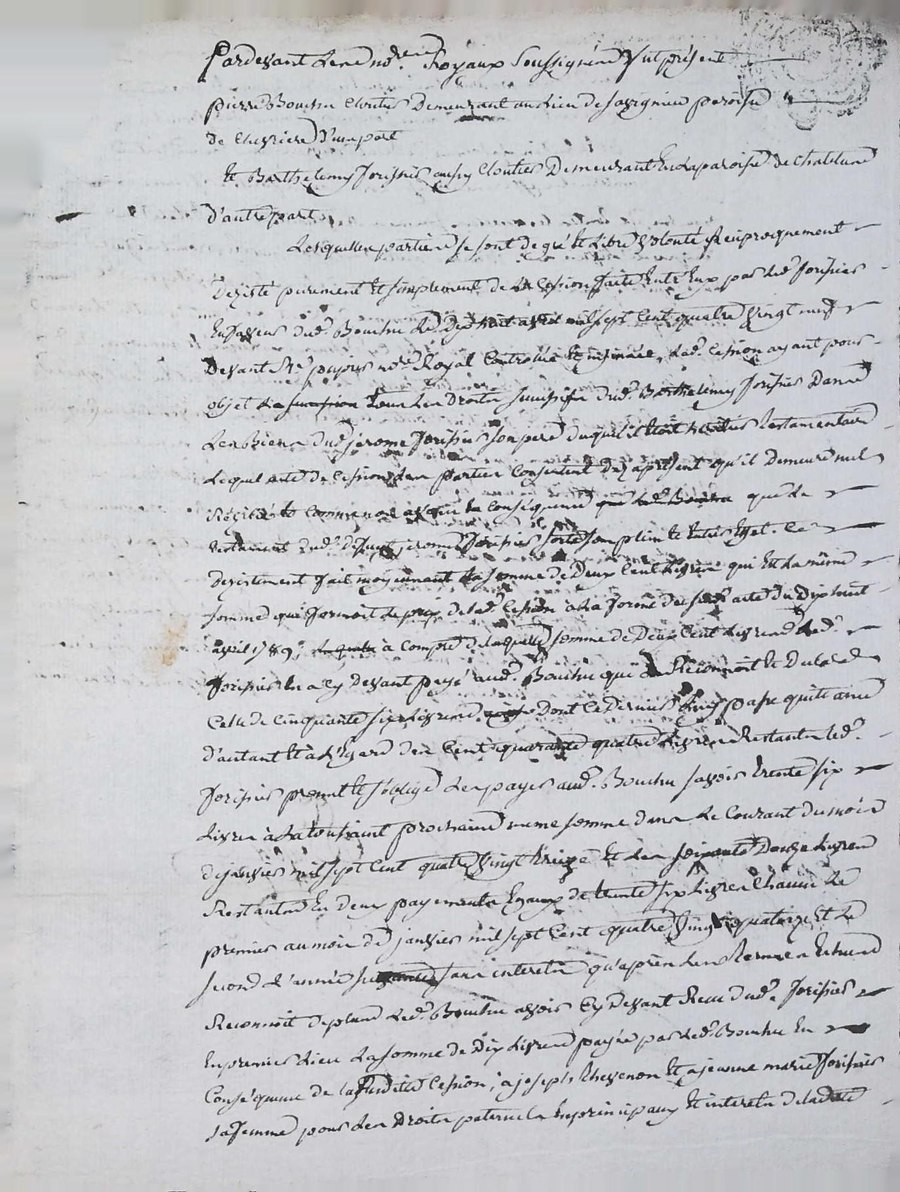 Pardevant Les no.res Royaux Soussignés fut présent
pierre Bouchu Cloutier Demeurant au lieu de savignieu paroisse
de Chevriere d'une part
Et Barthelemy forissier aussy Cloutier Demeurant En la paroisse de chatelus
D'autre part
Lesquelles parties se sont de gré Et Libre volonté Reciproquement
Desisté purement Et simplement de La Cession faite Entr'Eux par led. forissier
En faveur dud. Bouchu Le Dix huit avril mil sept Cent quatre Vingt neuf
Devant Me pujos no.re Royal Controlée Et insinuée, Lad. Cession ayant pour
objet Les Droits successifs dud. Barthelemy forissier Dans
Les Biens dud. jerome forissier son pere duquel il Etoit heritier Testamentaire
Lequel acte de Cession Les parties Consentent des aprésent qu'il Demeure nul
Résilié Et Comme non avenu En Conséquence que Le
testament dud. défunt jerome forissier sorte son plein Et Entier Effet. Ce
Desistement fait moyennant La somme de Deux Cent Livres qui Est La même
somme qui formoit Le prix de lad. Cession a La forme dud. acte du Dix huit
avril 1789, à Compte de laquelle somme de Deux Cent Livres Led.
forissier En a Cy devant payé aud. Bouchu qui Le Reconnoit
Celle de Cinquante six Livres Dont Ce Dernier Luy passe quittance
D'autant Et à L'Egard des Cent quarante quatre Livres Restantes led.
forissier promet Et s'oblige Les payer aud. Bouchu savoir trente six
Livres à La toussaint prochaine meme somme dans Le Courant du mois
de janvier mil sept Cent quatre Vingt treize Et Les soixante Douze Livres
Restantes En deux payements Egaux de trente six Livres Chacun Le
premier au mois de janvier mil sept Cent quatre Vingt quatorze Et Le
second L'année suivante sans interets qu'après Les Termes Echus
Reconnoit deplus Led. Bouchu avoir Cy devant Reçu dud. forissier
En premier Lieu La somme de Dix Livres payée par led. Bouchu En
Conséquence de la susditte Cession, a joseph thevenon Et a jeanne marie forissier
sa femme pour Les Droits paternels En principaux Et interets de ladite